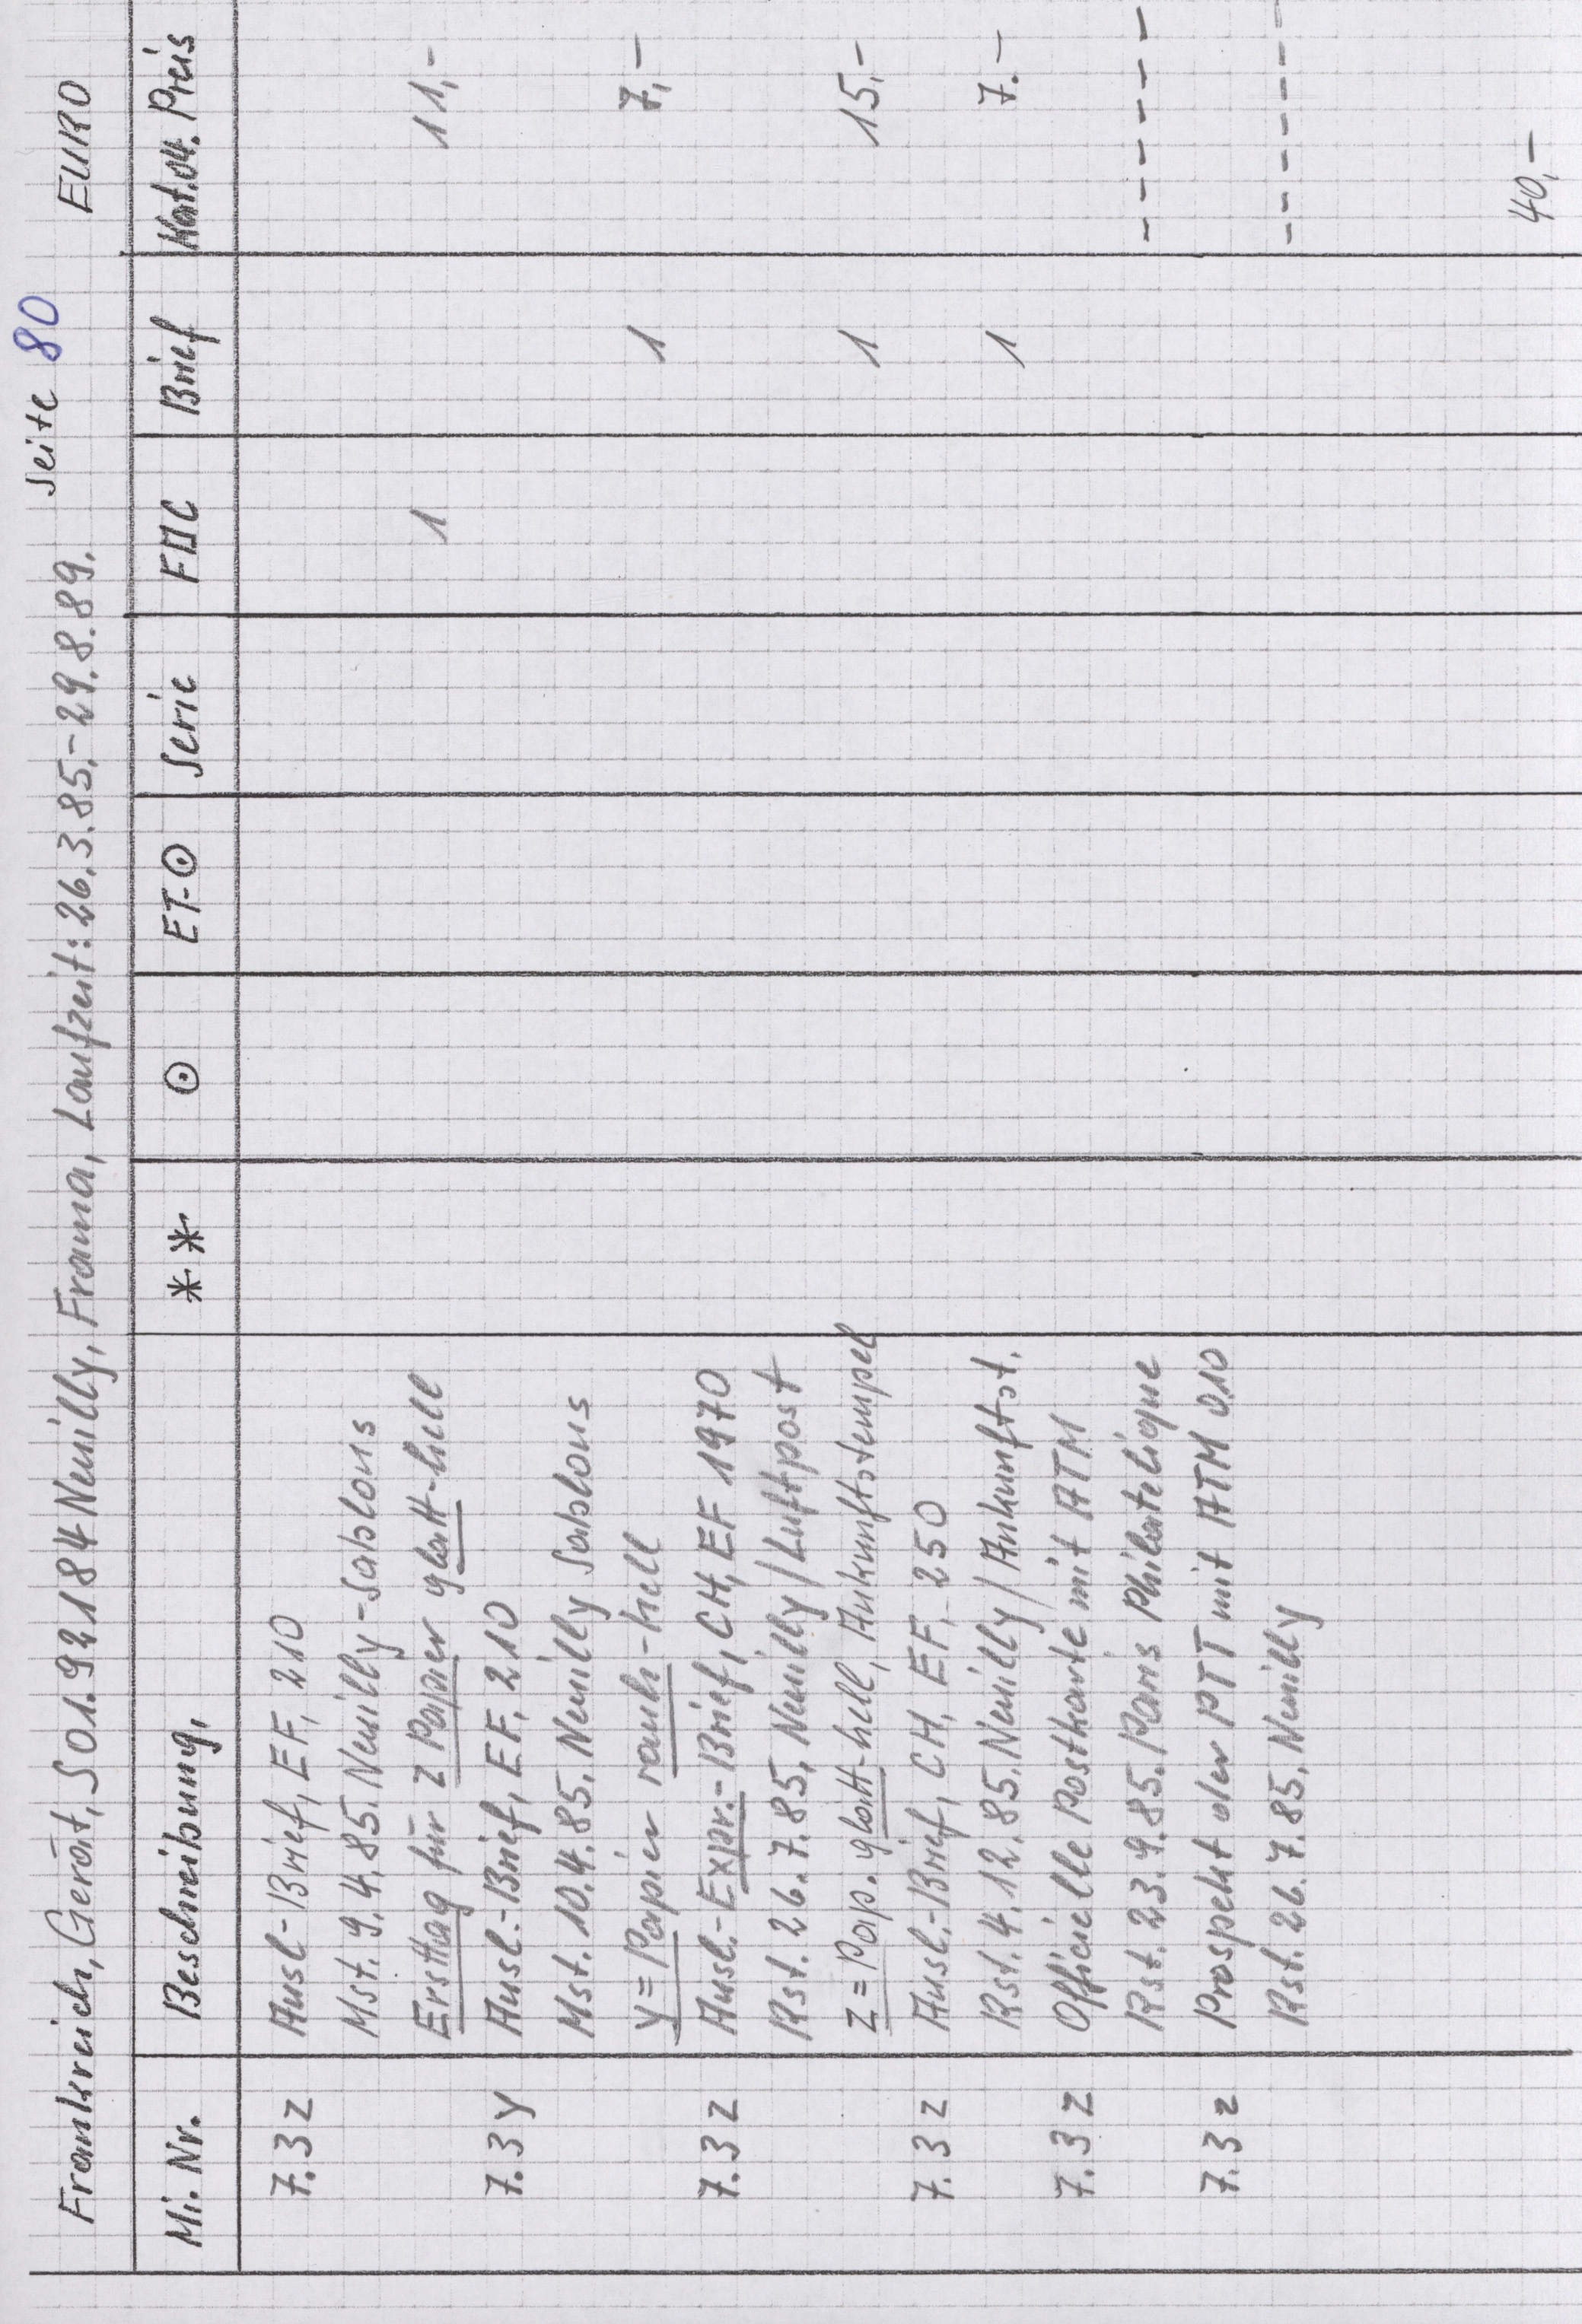 Seite 80
Frankreich, Gerät, S01.92184 Neuilly, Frama, Laufzeit: 26.3.85.-29.8.89. EURO
Mi. Nr. Beschreibung, ** ⊙ ET-⊙ Serie FDC Brief Kat.04. Preis
7.3 z Ausl-Brief, EF, 210
Mst. 9.4.85. Neuilly-Sablons
Ersttag für z Papier glatt-hell 1 11,-
7.3 y Ausl.-Brief, EF, 210
Mst. 10.4.85. Neuilly Sablons
y = Papier rauh-hell 1 7,-
7.3 z Ausl.-Expr.-Brief, CH, EF 1970
Rst. 26.7.85. Neuilly/Luftpost
z = Pap. glatt-hell, Ankunftstempel 1 15,-
7.3 z Ausl.-Brief, CH, EF, 250
Rst. 4.12.85. Neuilly/Ankunftst. 1 7.-
7.3 z Officielle Postkarte mit ATM
Rst. 23.9.85. Paris Philatelique ------
7.3 z Prospekt der PTT mit ATM 0.10
Rst. 26.7.85. Neuilly ------
40,-